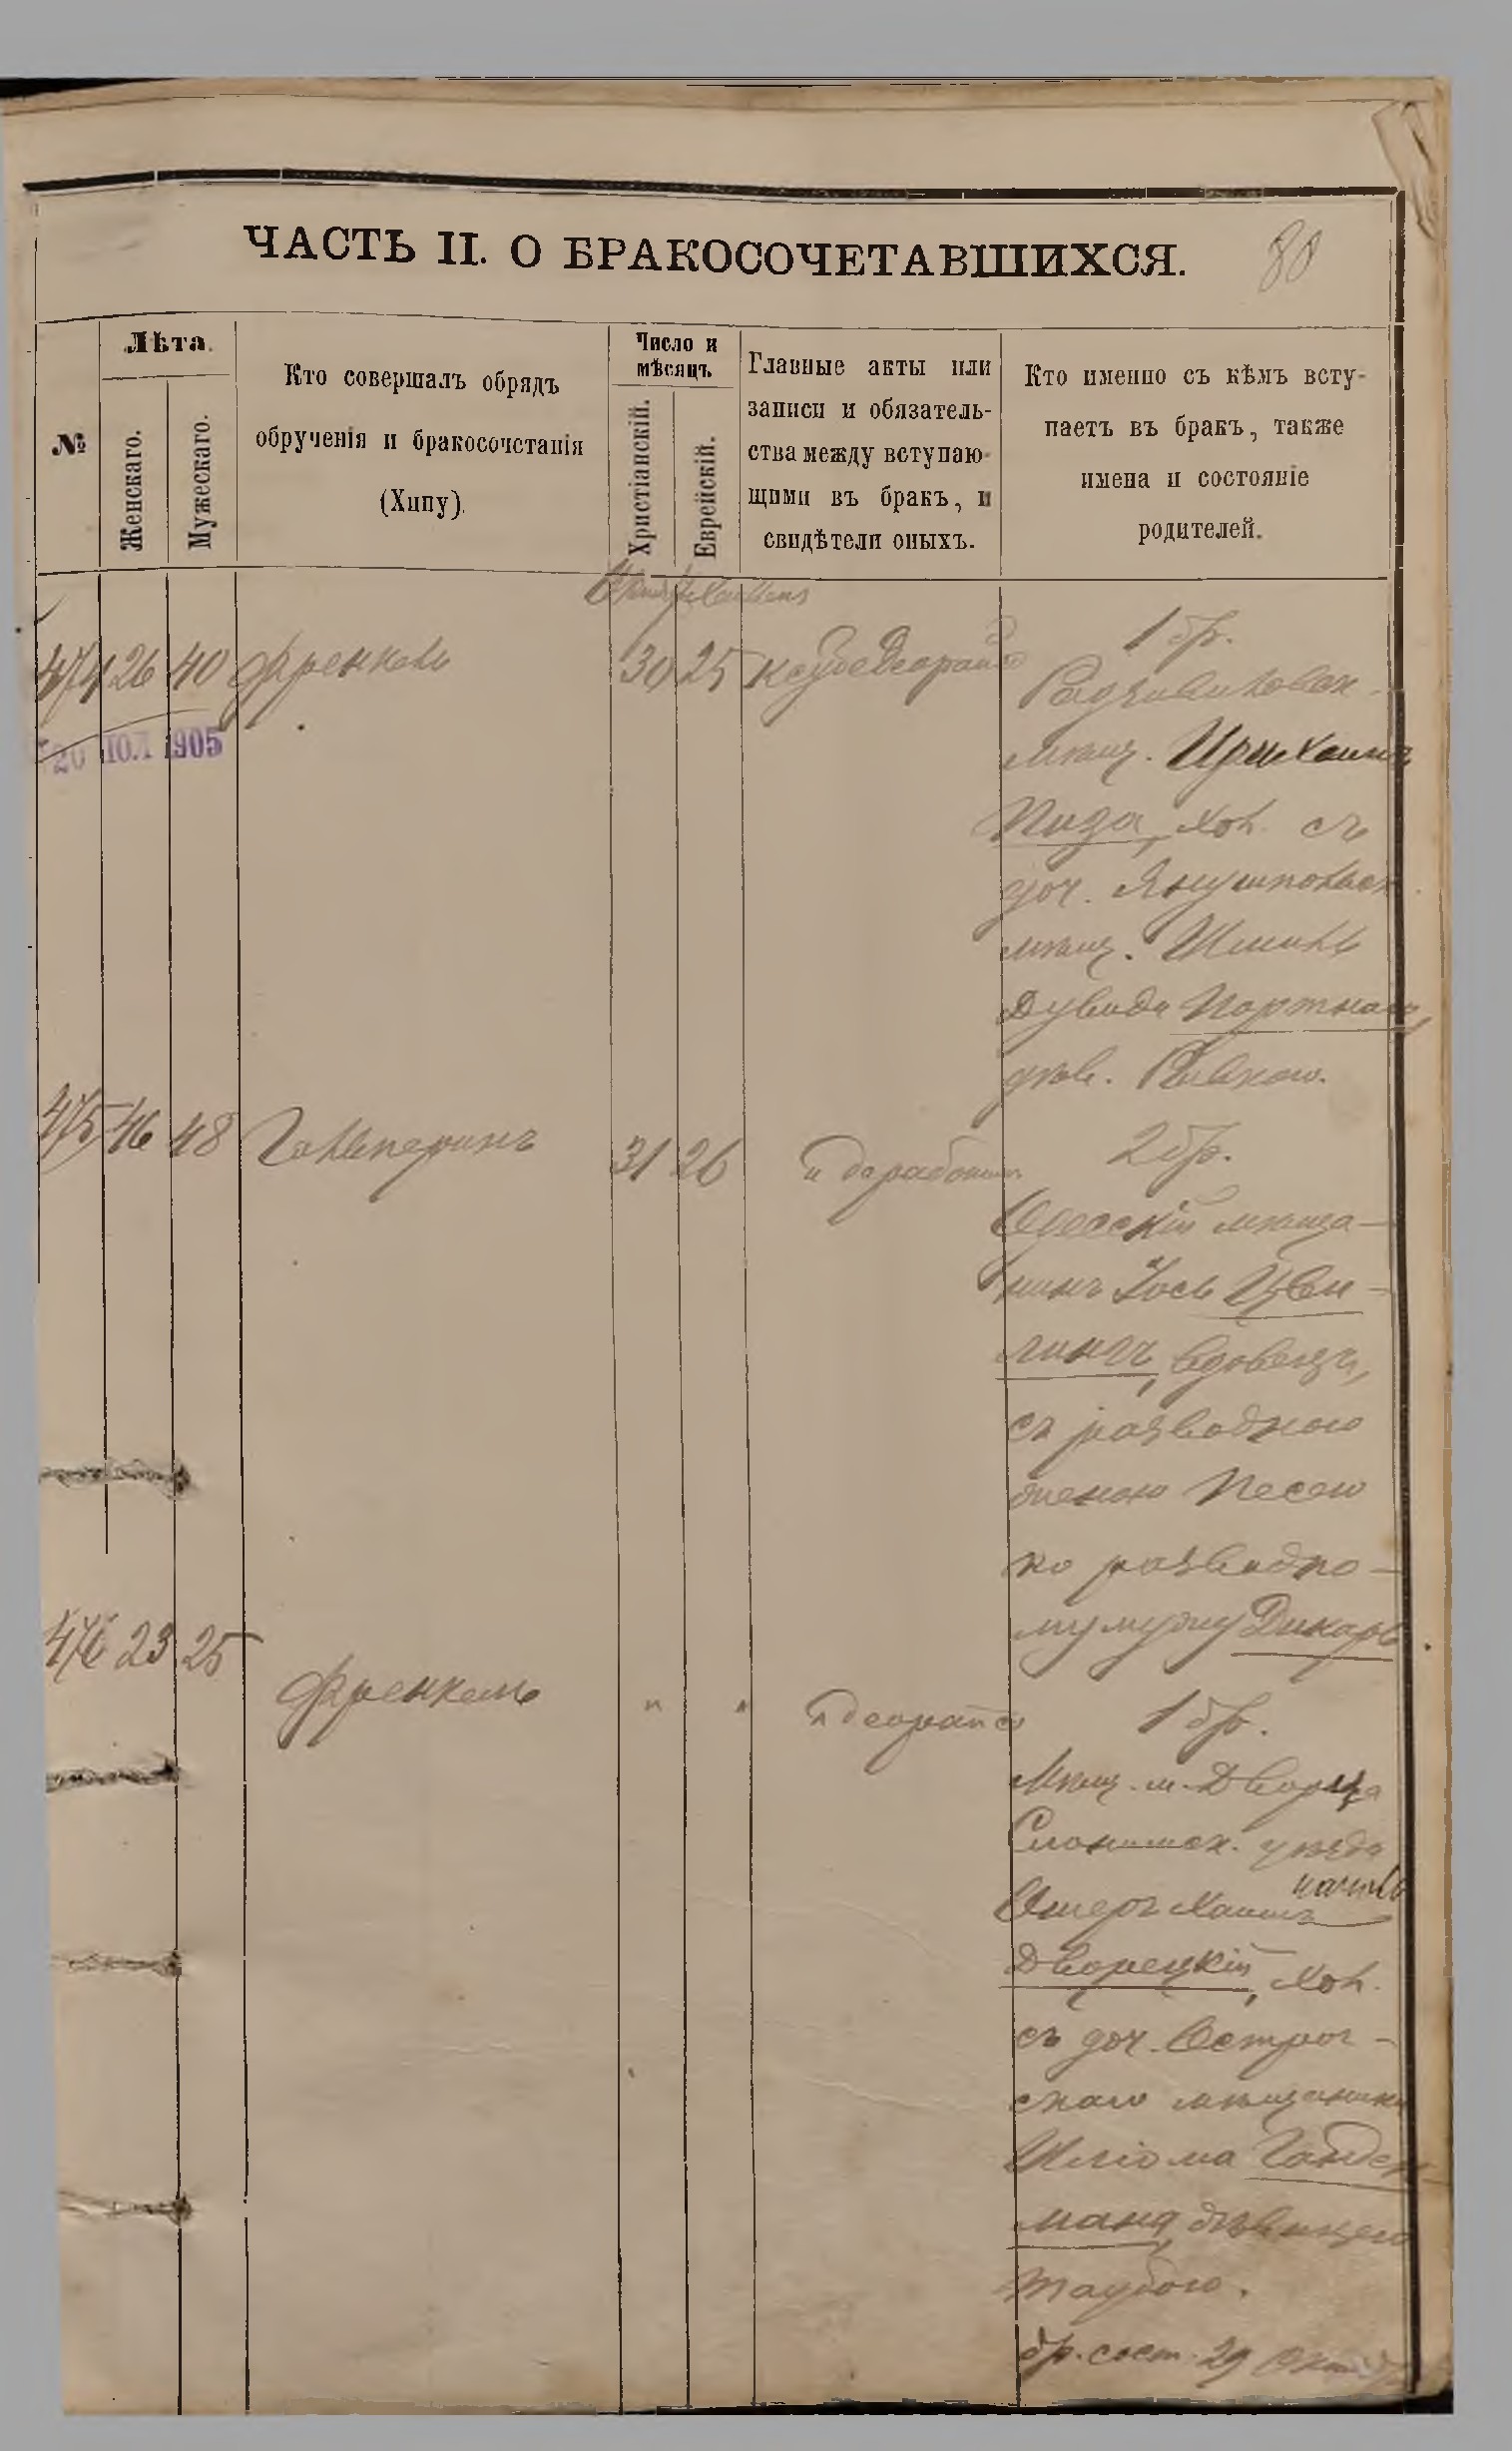 ЧАСТЬ II. О БРАКОСОЧЕТАВШИХСЯ.
80
№
Лѣта.
Женскаго.
Мужескаго.
Кто совершалъ обрядъ
обрученія и бракосочетанія
(Хипу).
Число и
мѣсяцъ
Христіанскій.
Еврейскій.
Главные акты или
записи и обязатель-
ства между вступаю-
щими въ бракъ, и
свидѣтели оныхъ.
Кто именно съ кѣмъ всту-
паетъ въ бракъ, также
имена и состояніе
родителей.
474 26 40 Френкель 30 25
20 ІЮЛ 1905
1 бр.
Радзивиловск.
мѣщ.
Пиза, хол. съ
доч. Янушпольск.
мѣщ.
Дувида Портного,
дѣв. Ривкою.
475 46 48 Гальперинъ 31 26
2 бр.
Одесскій мѣща-
нинъ Іось Цви-
лингъ, вдовецъ,
съ разводною
женою Песею
по разводно-
му мужу Дикарь
476 23 25
Френкель " "
1 бр.
Мѣщ. м. Дворца
Слонимск. уѣзда
Ошеръ Хаимъ
Дворецкій, хол.
съ доч. Острог-
скаго мѣщанина
Шліома Гандель-
мана, дѣвицею
Таубою.
бр. сост. 29 Октяб